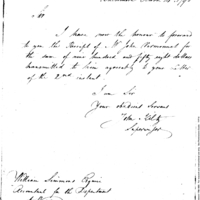 Sir
I have now the honour to forward
to you the Receipt of Mr John
the sum of one hundred and fifty eight dollars
transmitted to him agreeably to your letter
of the 22nd instant
I am Sir
Your obedient Servant
John
Supervisor
William Simmons Esquire
Accountant for the Department